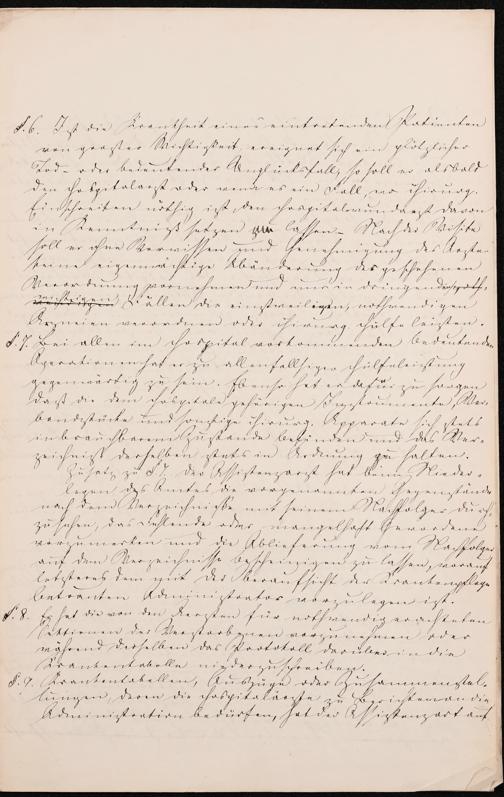 §. 6. Ist die Krankheit eines eintretenden Patienten
von großer Wichtigkeit, ereignet sich ein plötzlicher
Tod- oder bedeutender Unglücksfall, so soll er alsbald
den Hospitalarzt oder wenn es ein Fall, wo chirurg.
Einschreiten nöthig ist, den Hospitalwundarzt davon
in Kenntniß setzen lassen. Nach der Visite
soll er ohne Vorwissen und Genehmigung des Arztes
keine eigenmächtige Abänderung des geschehenen
Verordnung vornehmen und nur in dringend
Fällen die einstweiligen, nothwendigen
Arzneien verordnen oder chirurg. Hülfe leisten.
§. 7. Bei allen im Hospital vorkommenden bedeutenden
Operationen hat er zu allenfallsiger Hülfeleistung
gegenwärtig zu sein. Ebenso hat er dafür zu sorgen
daß die dem Hospitale gehörigen Instrumente, Ver-
bandstücke und sonstige chirurg. Apparate sich stets
in brauchbarem Zustande befinden und das Ver-
zeichniß derselben stets in Ordnung zu halten.
Zusatz zu §7. der Assistenzarzt hat beim Nieder-
legen des Amtes die vorgenannten Gegenstände
nach dem Verzeichniße mit seinem Nachfolger durch
zu sehen, das Fehlende oder mangelhaft Gewordene
vorzumerken und die Ablieferung vom Nachfolger
auf dem Verzeichnisse bescheinigen zu lassen, worauf
letzteres dem mit der Beraufsicht der Krankenpflege
betrauten Administrator vorzulegen ist.
§. 8. Er hat die von den Aerzten für nothwendig erachteten
Sektionen der Verstorbenen vorzunehmen oder
während derselben das Protokoll darüber in die
Krankentabelle niederzuschreiben.
§. 9. Krankentabellen, Auszüge oder Zusammenstel-
lungen, deren die Hospitalärzte zu Berichten an die
Administration bedürfen, hat der Assistenzarzt auf